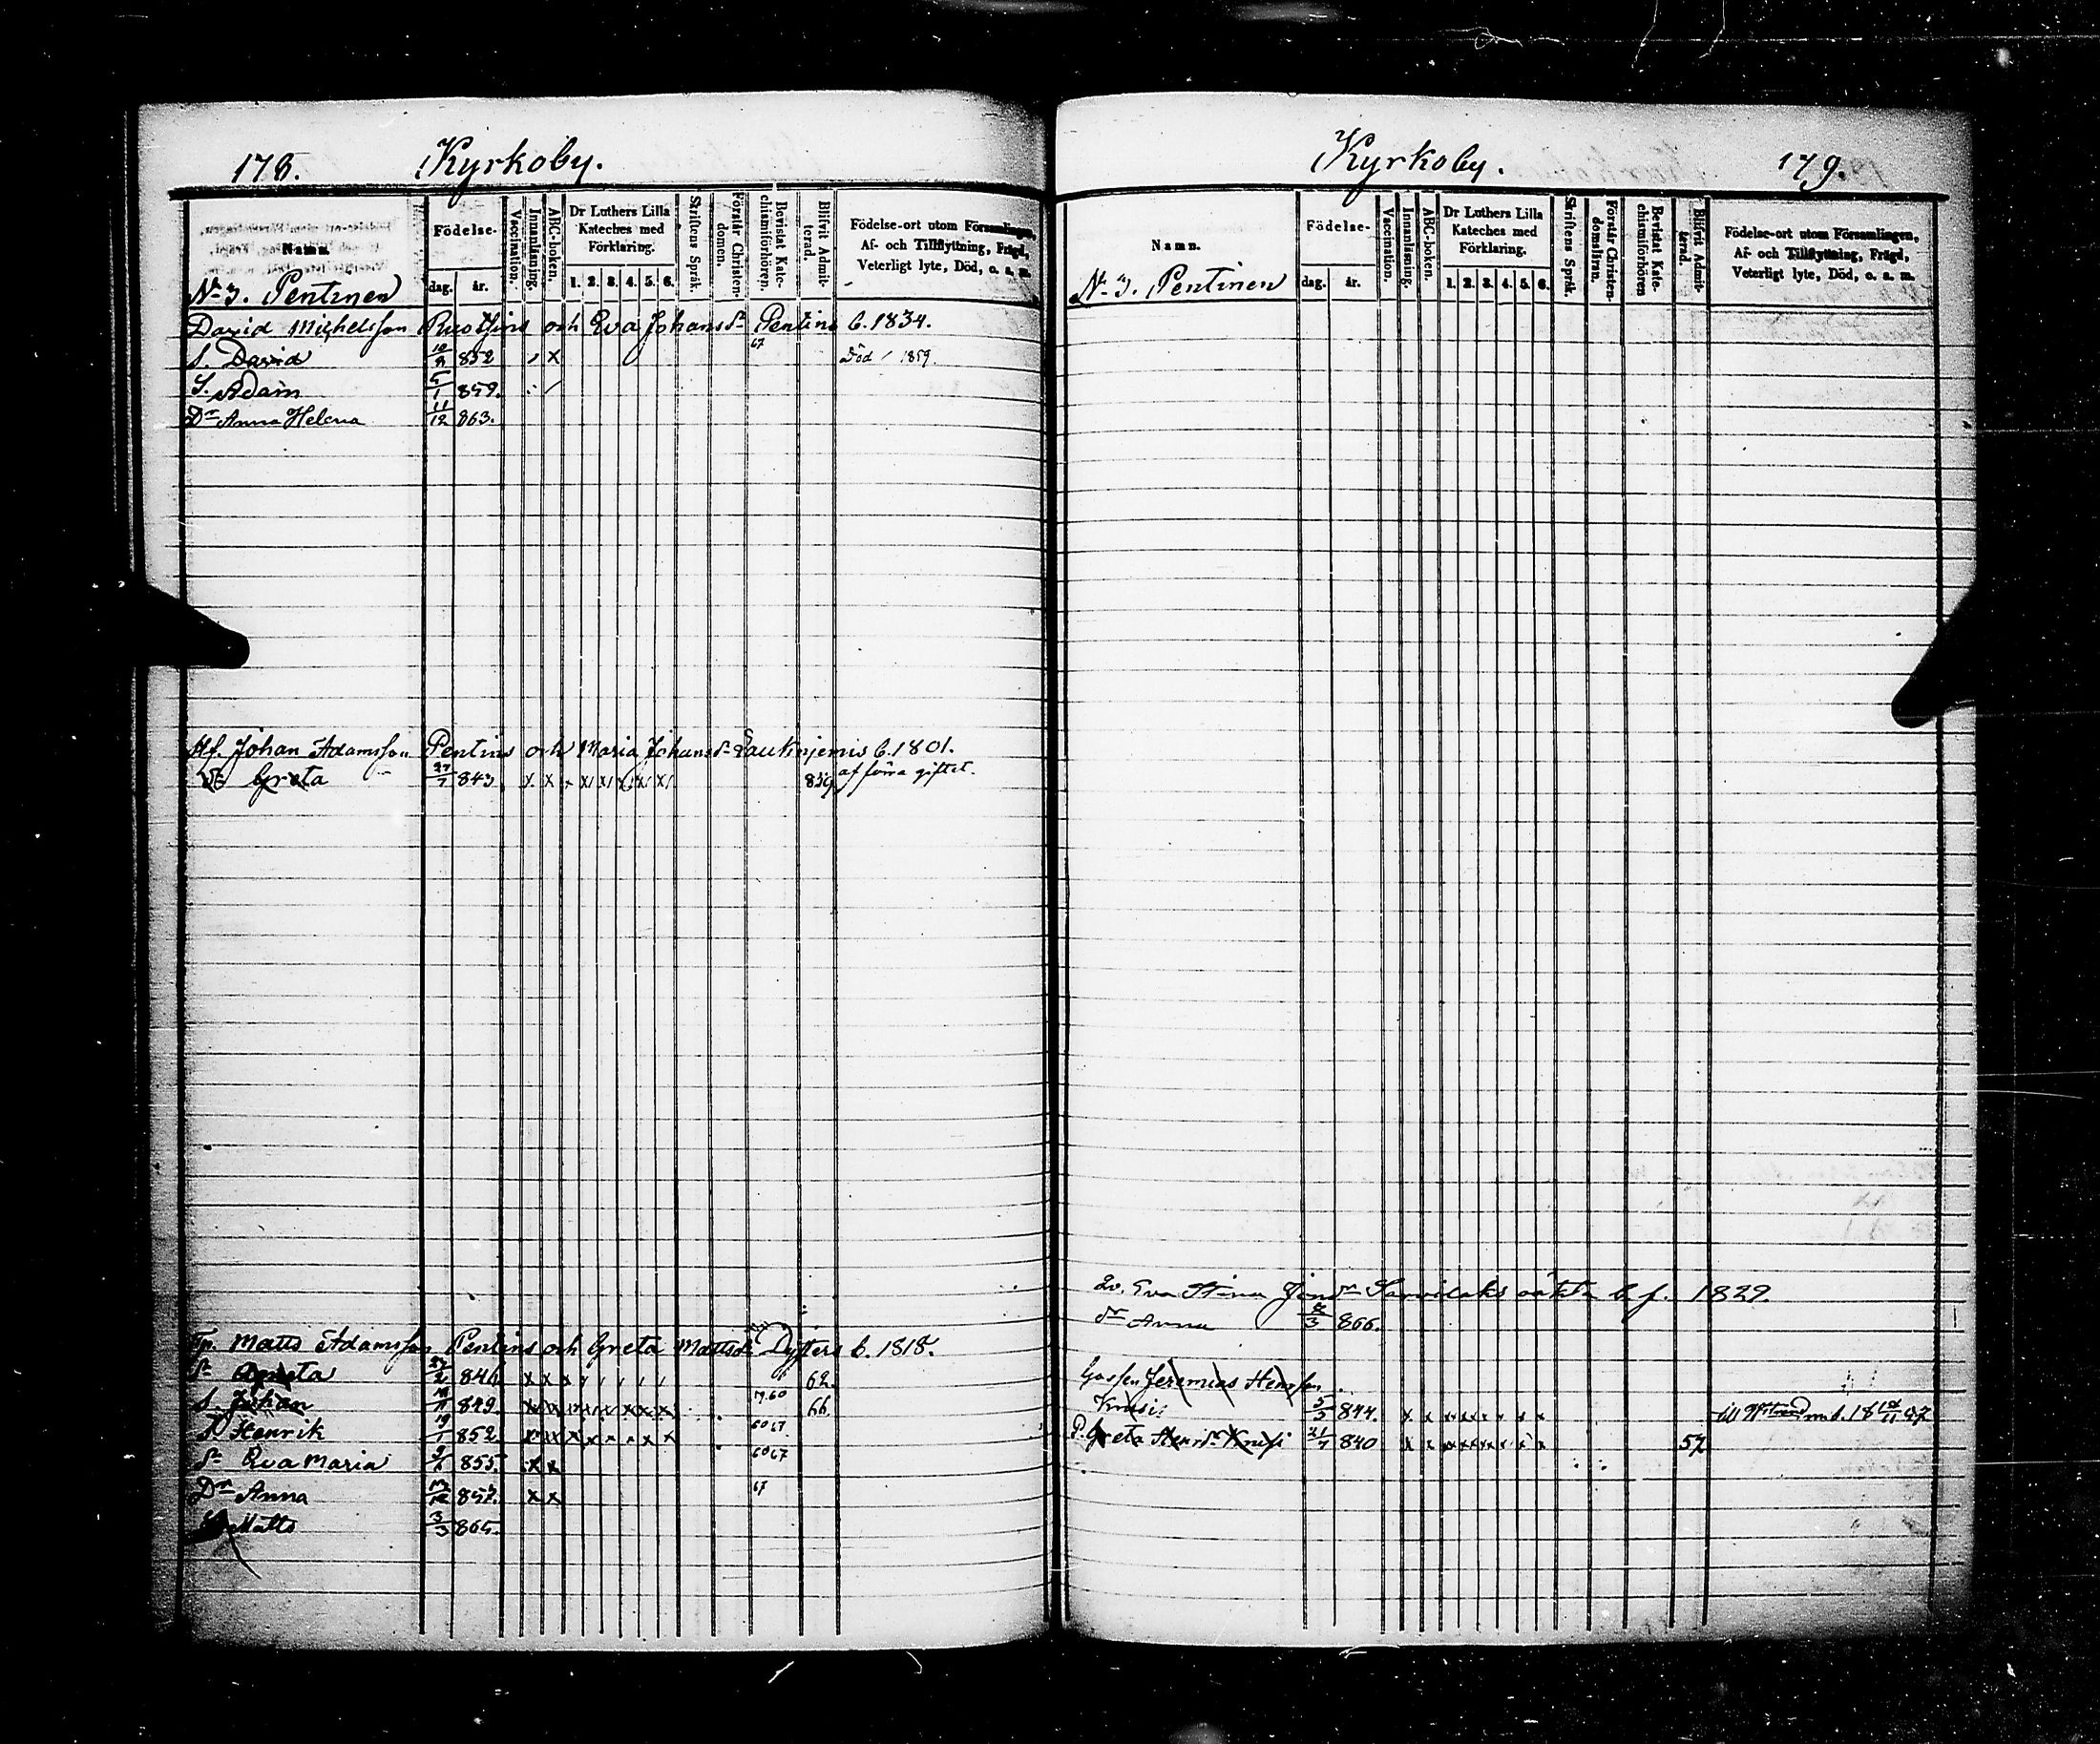 178. Kyrkoby.
Namn. Födelse- dag. år. Vaccination. Innanläsning. ABC-boken. Dr Luthers Lilla Kateches med Förklaring. 1. 2. 3. 4. 5. 6. Skriftens Språk. Förstår Christendomen. Bevistat Katechismiförhören. Blifvit Admitterad. Födelse-ort utom Församlingen, Af- och Tillflyttning, Frägd, Veterligt lyte, Död, o. s. m.
No 3. Pentinen
David Michelsson och Eva Johansdr Pentins b. 1834.
S. David 10/8 852 x 67 Död 1859.
S. Adam 5/1 859.
Dr Anna Helena 11/12 863.
Johan Adamsson Pentins och Maria Johansdr b. 1801.
Greta 27/7 843 x x x x x x x x 859 af förra giftet.
Matts Adamsson Pentins och Greta Mattsdr b. 1818.
Dr Greta 846. x x x 62.
S. Johan 849. x x x x x x x x 60 66.
Henrik 19/1 852. x x x x x x x 60 67
Dr Eva Maria 855. x x 60 67
Dr Anna 857. x x 67
Matts 3/3 865.
Kyrkoby. 179.
Namn. Födelse- dag. år. Vaccination. Innanläsning. ABC-boken. Dr Luthers Lilla Kateches med Förklaring. 1. 2. 3. 4. 5. 6. Skriftens Språk. Förstår Christendomsläran. Bevistat Katechismiförhören Blifvit Admitterad. Födelse-ort utom Församlingen, Af- och Tillflyttning, Frägd, Veterligt lyte, Död, o. s. m.
No 3. Pentinen
Eva Stina b. f. 1829.
dr Anna 866.
Gossen Jeremias Henrsson
5/5 844. x x x x x x x x till
P. Greta Henrsdr 21/7 840 x x x x x x x x 57